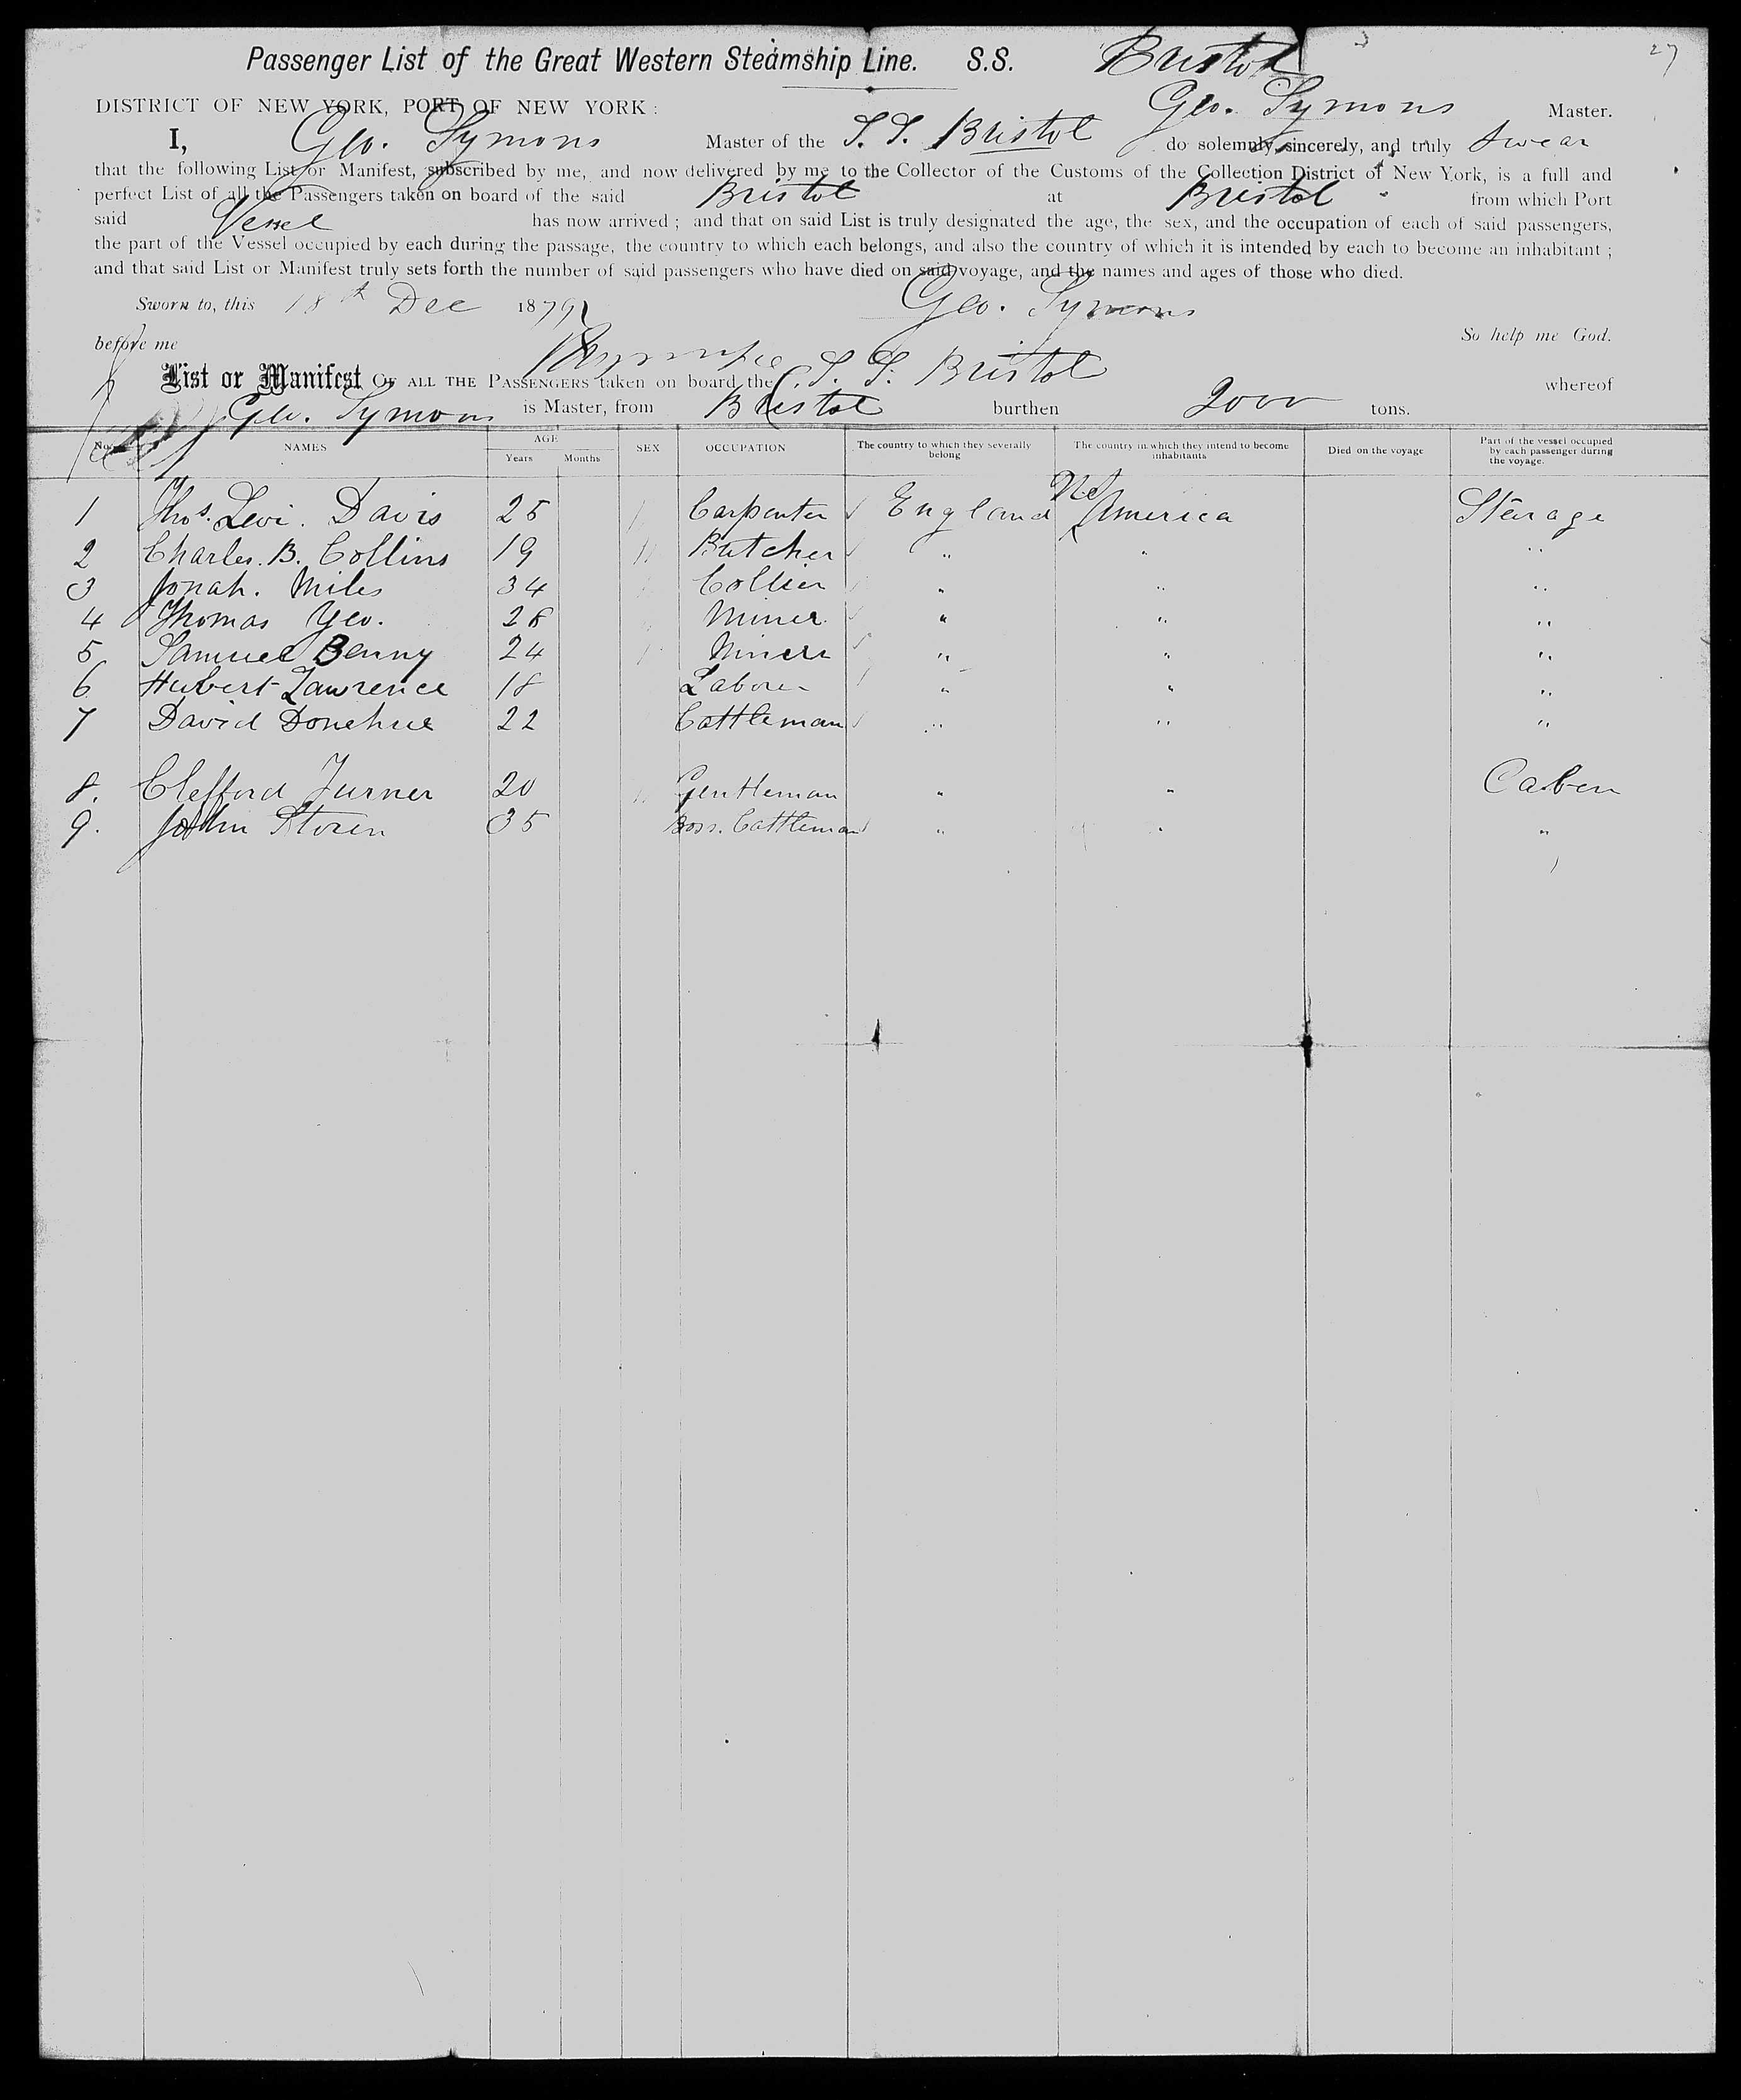 27
Passenger List of the Great Western Steamship Line. S.S. Bristol
DISTRICT OF NEW YORK, PORT OF NEW YORK : Geo. Symons Master.
I, Geo. Symons Master of the S.S. Bristol do solemnly, sincerely, and truly swear
that the following List or Manifest, subscribed by me, and now delivered by me to the Collector of the Customs of the Collection District of New York, is a full and
perfect List of all the Passengers taken on board of the said Bristol at Bristol from which Port
said Vessel has now arrived ; and that on said List is truly designated the age, the sex, and the occupation of each of said passengers,
the part of the Vessel occupied by each during the passage, the country to which each belongs, and also the country of which it is intended by each to become an inhabitant ;
and that said List or Manifest truly sets forth the number of said passengers who have died on said voyage, and the names and ages of those who died.
Sworn to, this 18th Dec 1879 Geo. Symons
before me So help me God.
List or Manifest OF ALL THE PASSENGERS taken on board the S.S. Bristol whereof
Geo. Symons is Master, from Bristol burthen 2000 tons.
No. NAMES AGE Years Months SEX OCCUPATION The country to which they severally belong The country in which they intend to become inhabitants Died on the voyage Part of the vessel occupied by each passenger during the voyage.
1 Thos. Levi. Davis 25 Carpenter England America Stearage
2 Charles. B. Collins 19 Butcher " " "
3 Jonah. Miles 34 Collier " " "
4 Thomas Yeo. 28 Miner " " "
5 Samuel Benny 24 Miner " " "
6 Hubert Lawrence 18 Laborer " " "
7 David Donehue 22 Cattleman " " "
8. Clefford Turner 20 Gentleman " " Caben
9. John 35 Boss. Cattleman " " "